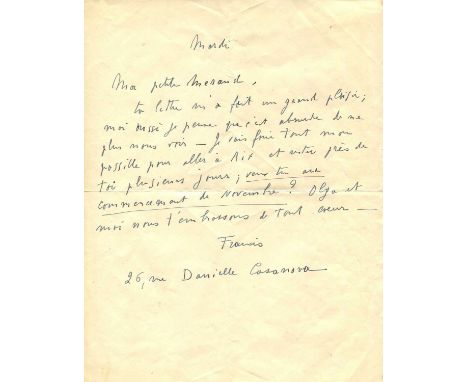 Mardi
Ma petite Meraud,
ta lettre m'a fait un grand plaisir;
moi aussi je pense que c'est absurde de ne
plus nous voir — Je vais faire tout mon
possible pour aller à Aix et rester près de
toi plusieurs jours; veux tu au
commencement de novembre? Olga et
moi nous t'embrassons de tout coeur —
Francis
26, rue Danielle Casanova